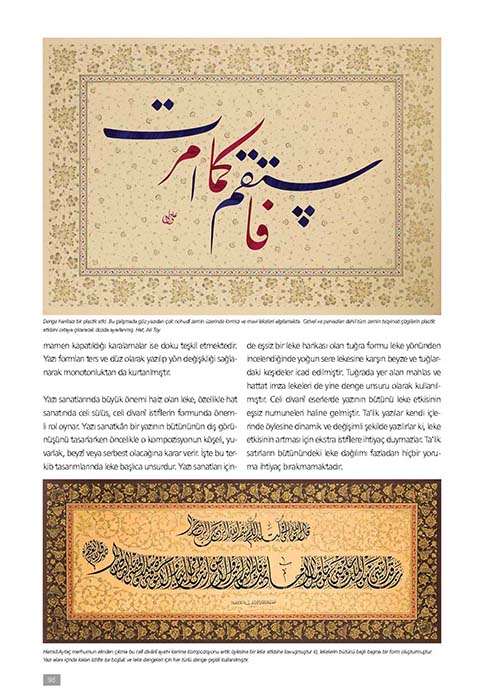 فاستقم كما امرت
Denge harikası bir plastik etki. Bu çalışmada göz yazıdan çok nohudî zemin üzerinde kırmızı ve mavi lekeleri algılamakta. Cetvel ve pervazları dahil tüm zemin tezyinatı çizgilerin plastik
etkisini ortaya çıkaracak dozda ayarlanmış, Hat, Ali Toy
mamen kapatıldığı karalamalar ise doku teşkil etmektedir.
Yazı formları ters ve düz olarak yazılıp yön değişikliği sağla-
narak monotonluktan da kurtarılmıştır.
Yazı sanatlarında büyük önemi haiz olan leke, özellikle hat
sanatında celi sülüs, celi divanî istiflerin formunda önem-
li rol oynar. Yazı sanatkârı bir yazının bütününün dış görü-
nüşünü tasarlarken öncelikle o kompozisyonun köşeli, yu-
varlak, beyzî veya serbest olacağına karar verir. İşte bu ter-
kib tasarımlarında leke başlıca unsurdur. Yazı sanatları için-
de eşsiz bir leke harikası olan tuğra formu leke yönünden
incelendiğinde yoğun sere lekesine karşın beyze ve tuğlar-
daki keşideler icad edilmiştir. Tuğrada yer alan mahlas ve
hattat imza lekeleri de yine denge unsuru olarak kullanıl-
mıştır. Celi divanî eserlerde yazının bütünü leke etkisinin
eşsiz numuneleri haline gelmiştir. Ta'lik yazılar kendi içle-
rinde öylesine dinamik ve değişimli şekilde yazılırlar ki, leke
etkisinin artması için ekstra istiflere ihtiyaç duymazlar. Ta'lik
satırların bütünündeki leke dağılımı fazladan hiçbir yoru-
ma ihtiyaç bırakmamaktadır.
Hamid Aytaç merhumun elinden çıkma bu celî divânî ayeti kerime kompozisyonu artık öylesine bir leke etkisine kavuşmuştur ki, lekelerin bütünü başlı başına bir form oluşturmuştur.
Yazı alanı içinde kalan istifte ise boşluk ve leke dengeleri için her türlü denge çeşidi kullanılmıştır.
98